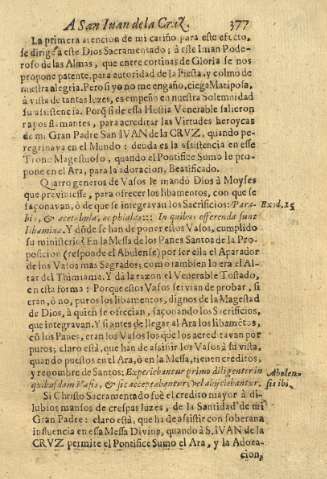 A San Iuan de la Cruz. 377
La primera atencion de mi cariño, para este efecto,
se dirige a este Dios Sacramentado; à este Iman Pode-
roso de las Almas, que entre cortinas de Gloria se nos
propone patente, para autoridad de la Fiesta, y colmo de
nuestra alegria. Pero si yo no me engaño, ciega Mariposa,
à vista de tantas luzes, es empeño en nuestra solemnidad
su assistencia. Porque si de essa Hostia Venerable salieron
rayos flamantes, para acreditar las Virtudes heroycas
de mi Gran Padre San IVAN de la CRVZ, quando pe-
regrinava en el Mundo; deuda es la assistencia en esse
Trono Magestuoso, quando el Pontifice Sumo le pro-
pone en el Ara, para la adoracion, Beatificado.
Quatro generos de Vasos le mandò Dios à Moyses
que previniesse, para ofrecer los libamentos, con que se
façonavan, ò de que se integravan los Sacrificios: Para-
bis, & acetabula, ac phialas::: In quibus offerenda sunt Exod. 25
libamina. Y dònde se han de poner estos Vasos, cumplido
su ministerio? En la Messa de los Panes Santos de la Pro-
posicion (responde el Abulense) por ser ella el Aparador
de los Vasos mas Sagrados; como tambien lo era el Al-
tar del Thimiama. Y dà la razon el Venerable Tostado,
en esta forma: Porque estos Vasos servian de probar, si
eran, ò no, puros los libamentos, dignos de la Magestad
de Dios, à quien se ofrecian, façonando los Sacrificios,
que integravan. Y si antes de llegar al Ara los libamentos,
con los Panes, eran los Vasos los que los acreditavan por
puros; claro està, que han de assistir los Vasos à su vista,
quando puestos en el Ara, ò en la Messa, tienen creditos,
y renombre de Santos: Experiebantur primo diligenter in Abulen-
quibusdam Vasis, & sic acceptabantur, vel abijciebantur. sis ibi.
Si Christo Sacramentado fuè el credito mayor à di-
lubios mansos de crespas luzes, de la Santidad de mi
Gran Padre: claro està, que ha de assistir con soberana
influencia en essa Messa Divina, quando à S. IVAN de la
CRVZ permite el Pontifice Sumo el Ara, y la Adora-
cion,